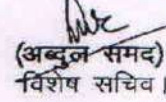 (अब्दुल समद)
विशेष सचिव।